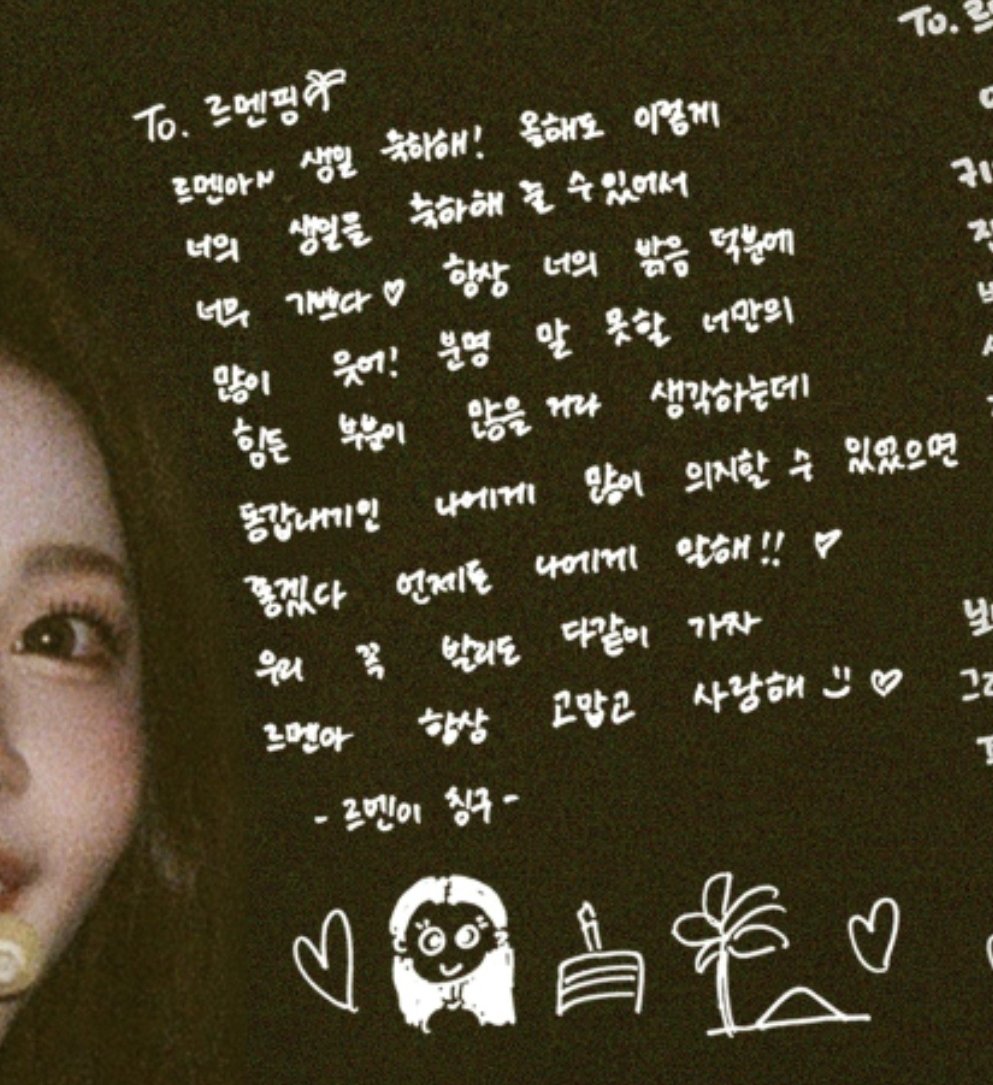 To. 르멘핑
르멘아~ 생일 축하해! 올해도 이렇게
너의 생일을 축하해 줄 수 있어서
너무 기쁘다♡ 항상 너의 밝음 덕분에
많이 웃어! 분명 말 못할 너만의
힘든 부분이 많을 거라 생각하는데
동갑내기인 나에게 많이 의지할 수 있었으면
좋겠다 언제든 나에게 말해!! ♡
우리 꼭 발리도 다같이 가자
르멘아 항상 고맙고 사랑해 ♡
- 르멘이 칭구 -
To.